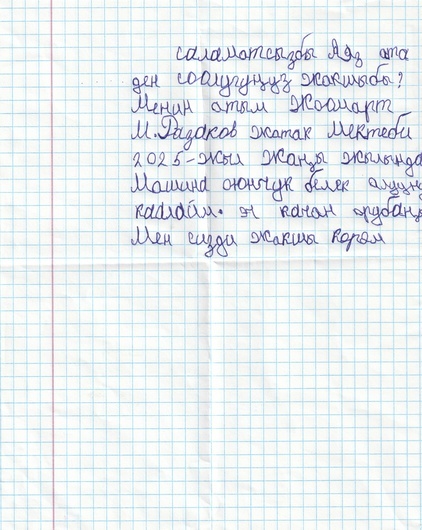 саламатсызбы Аяз ата
ден соолугуңуз жакшыбы?
Менин атым Жоомарт
М.Разаков жатак Мектеби
2025-жыл Жаңы жылында
Машина оюнчук белек алуунд
каалайм. эч качан арубанд
Мен сизди жакшы көрөм